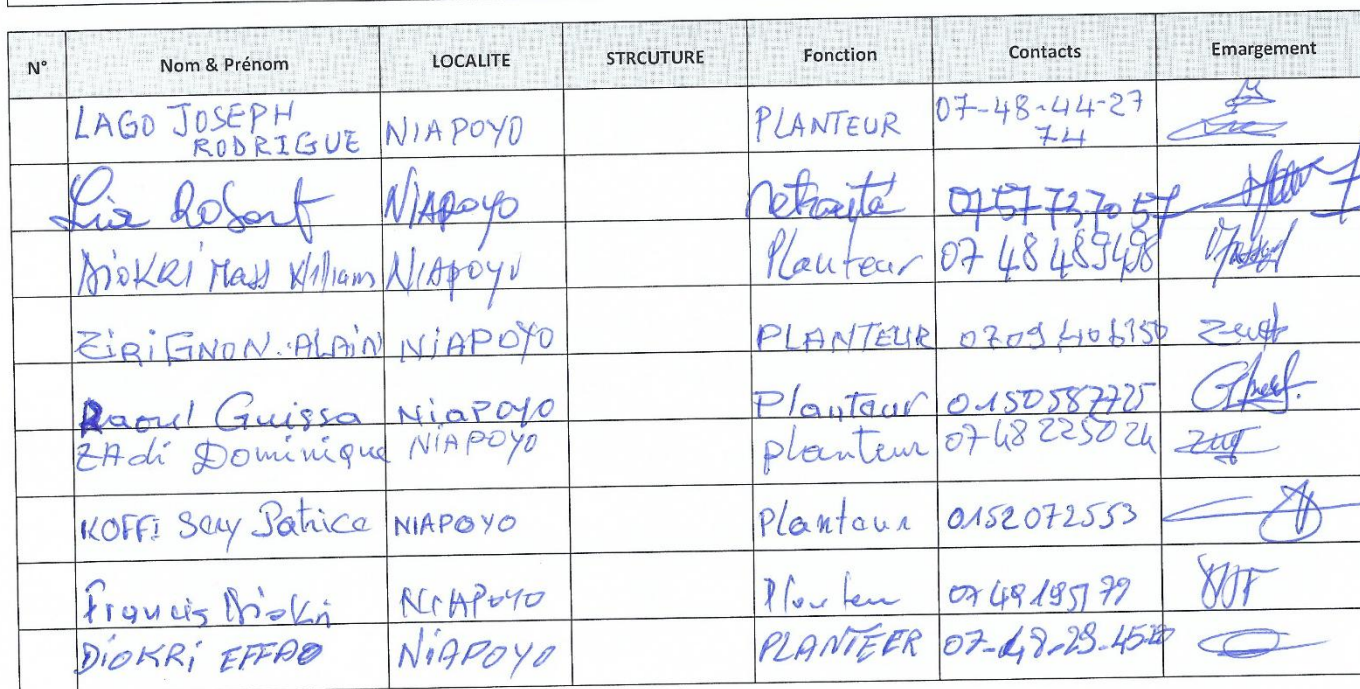 N° Nom & Prénom LOCALITE STRCUTURE Fonction Contacts Emargement
LAGO JOSEPH RODRIGUE NIAPOYO PLANTEUR 07-48-44-27 74
Robert NIAPOYO retraité 0757737057
DioKRi Mass William NIAPOYO Planteur 07 48 489498
ZiRiGNON ALAiN NiAPOYO PLANTEUR
Raoul Guissa NiaPOYO Planteur 0150587725
ZAdi Dominique NiAPOYO planteur 0748225024
KOFFi Sery Patrice NIAPOYO Planteur 0152072553
Francis Diokri NIAPOYO Planteur
DiOKRi NiAPOYO PLANTEER